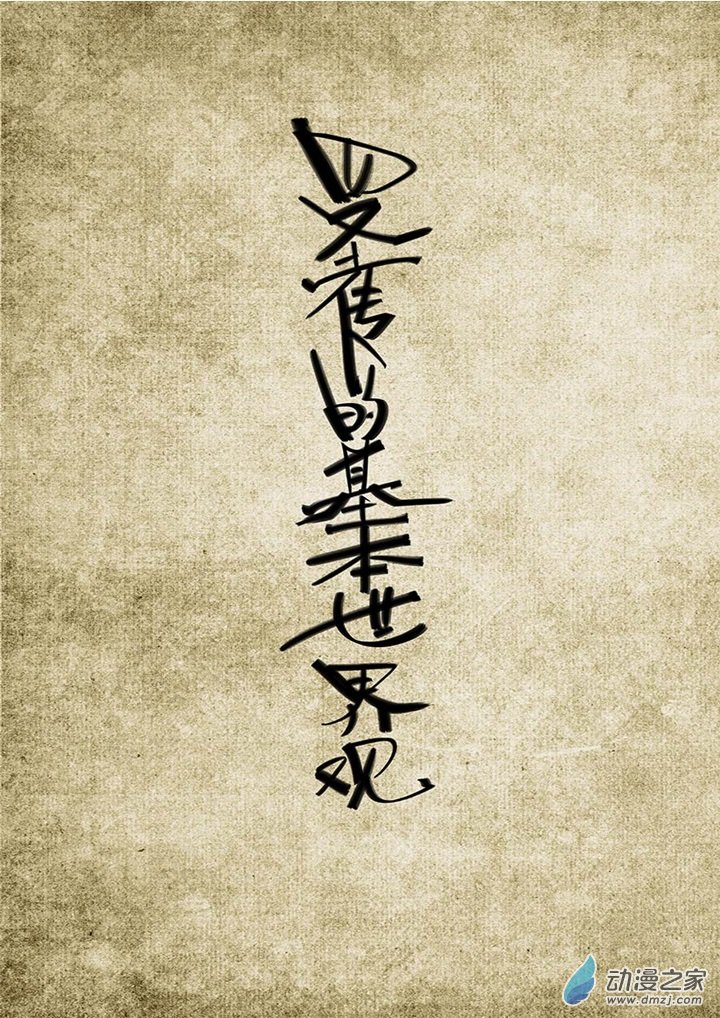 的基本世界观
动漫之家
www.dmzj.com